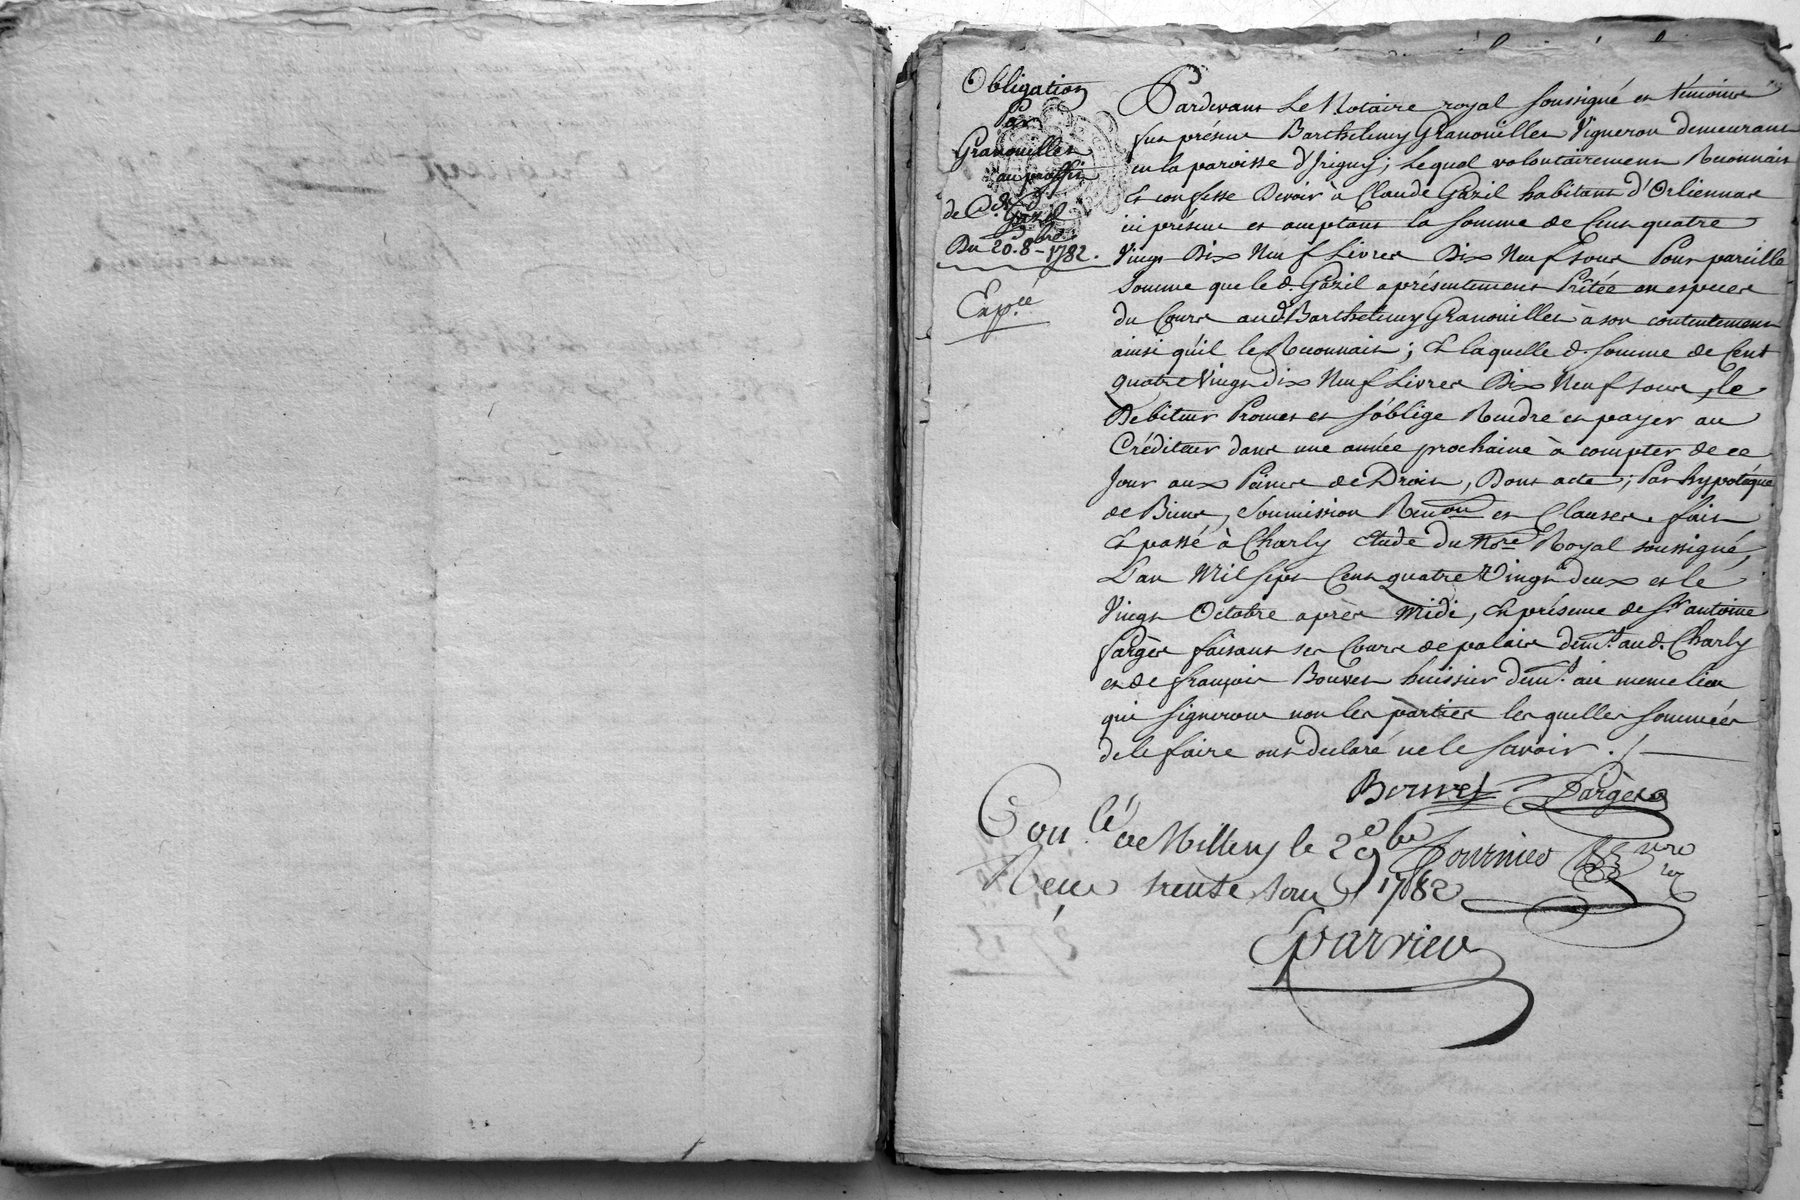 Obligation
Par
Granouillet
au proffit
de C. de d.
Gazil
Du 20. 8bre 1782.
Exp.ée
Pardevant Le Notaire royal soussigné et témoins
fut présent Barthelemy Granouillet Vigneron demeurant
en la paroisse d'Irigny; Lequel volontairement Reconnait
Et confesse Devoir à Claude Gazil habitant d'Orliennas
ici présent et acceptant la somme de Cent quatre
Vingt Dix Neuf Livres Dix Neuf Sous Pour pareille
Somme que led. Gazil a présentement Prêtée en espèces
du Cours aud. Barthelemy Granouillet à son contentement
ainsi qu'il le Reconnait; Et laquelle d. somme de Cent
Quatre Vingt dix Neuf Livres Dix Neuf sous, le
Débiteur Promet et s'oblige Rendre et payer au
Créditeur dans une année prochaine à compter de ce
Jour aux Peines de Droit, Dont acte; Par hypotéque
de Biens, Soumission Ren.on et Clauses. fait
Et passé à Charly etude du No.re Royal soussigné,
L'an Mil Sept Cent quatre Vingt deux et le
Vingt Octobre après Midi, En présence de Sr. antoine
Fargès faisant ses Cours de palais dem.t aud. Charly
et de françois Bouvet huissier dem.t au meme lieu
qui signeront non les parties lesquelles sommées
de le faire ont declaré ne le savoir . /
Bouvet Fargès
Con.lé à Millery le 2 9bre Fournier no.re
Recu trente sous 1782
Parrieu